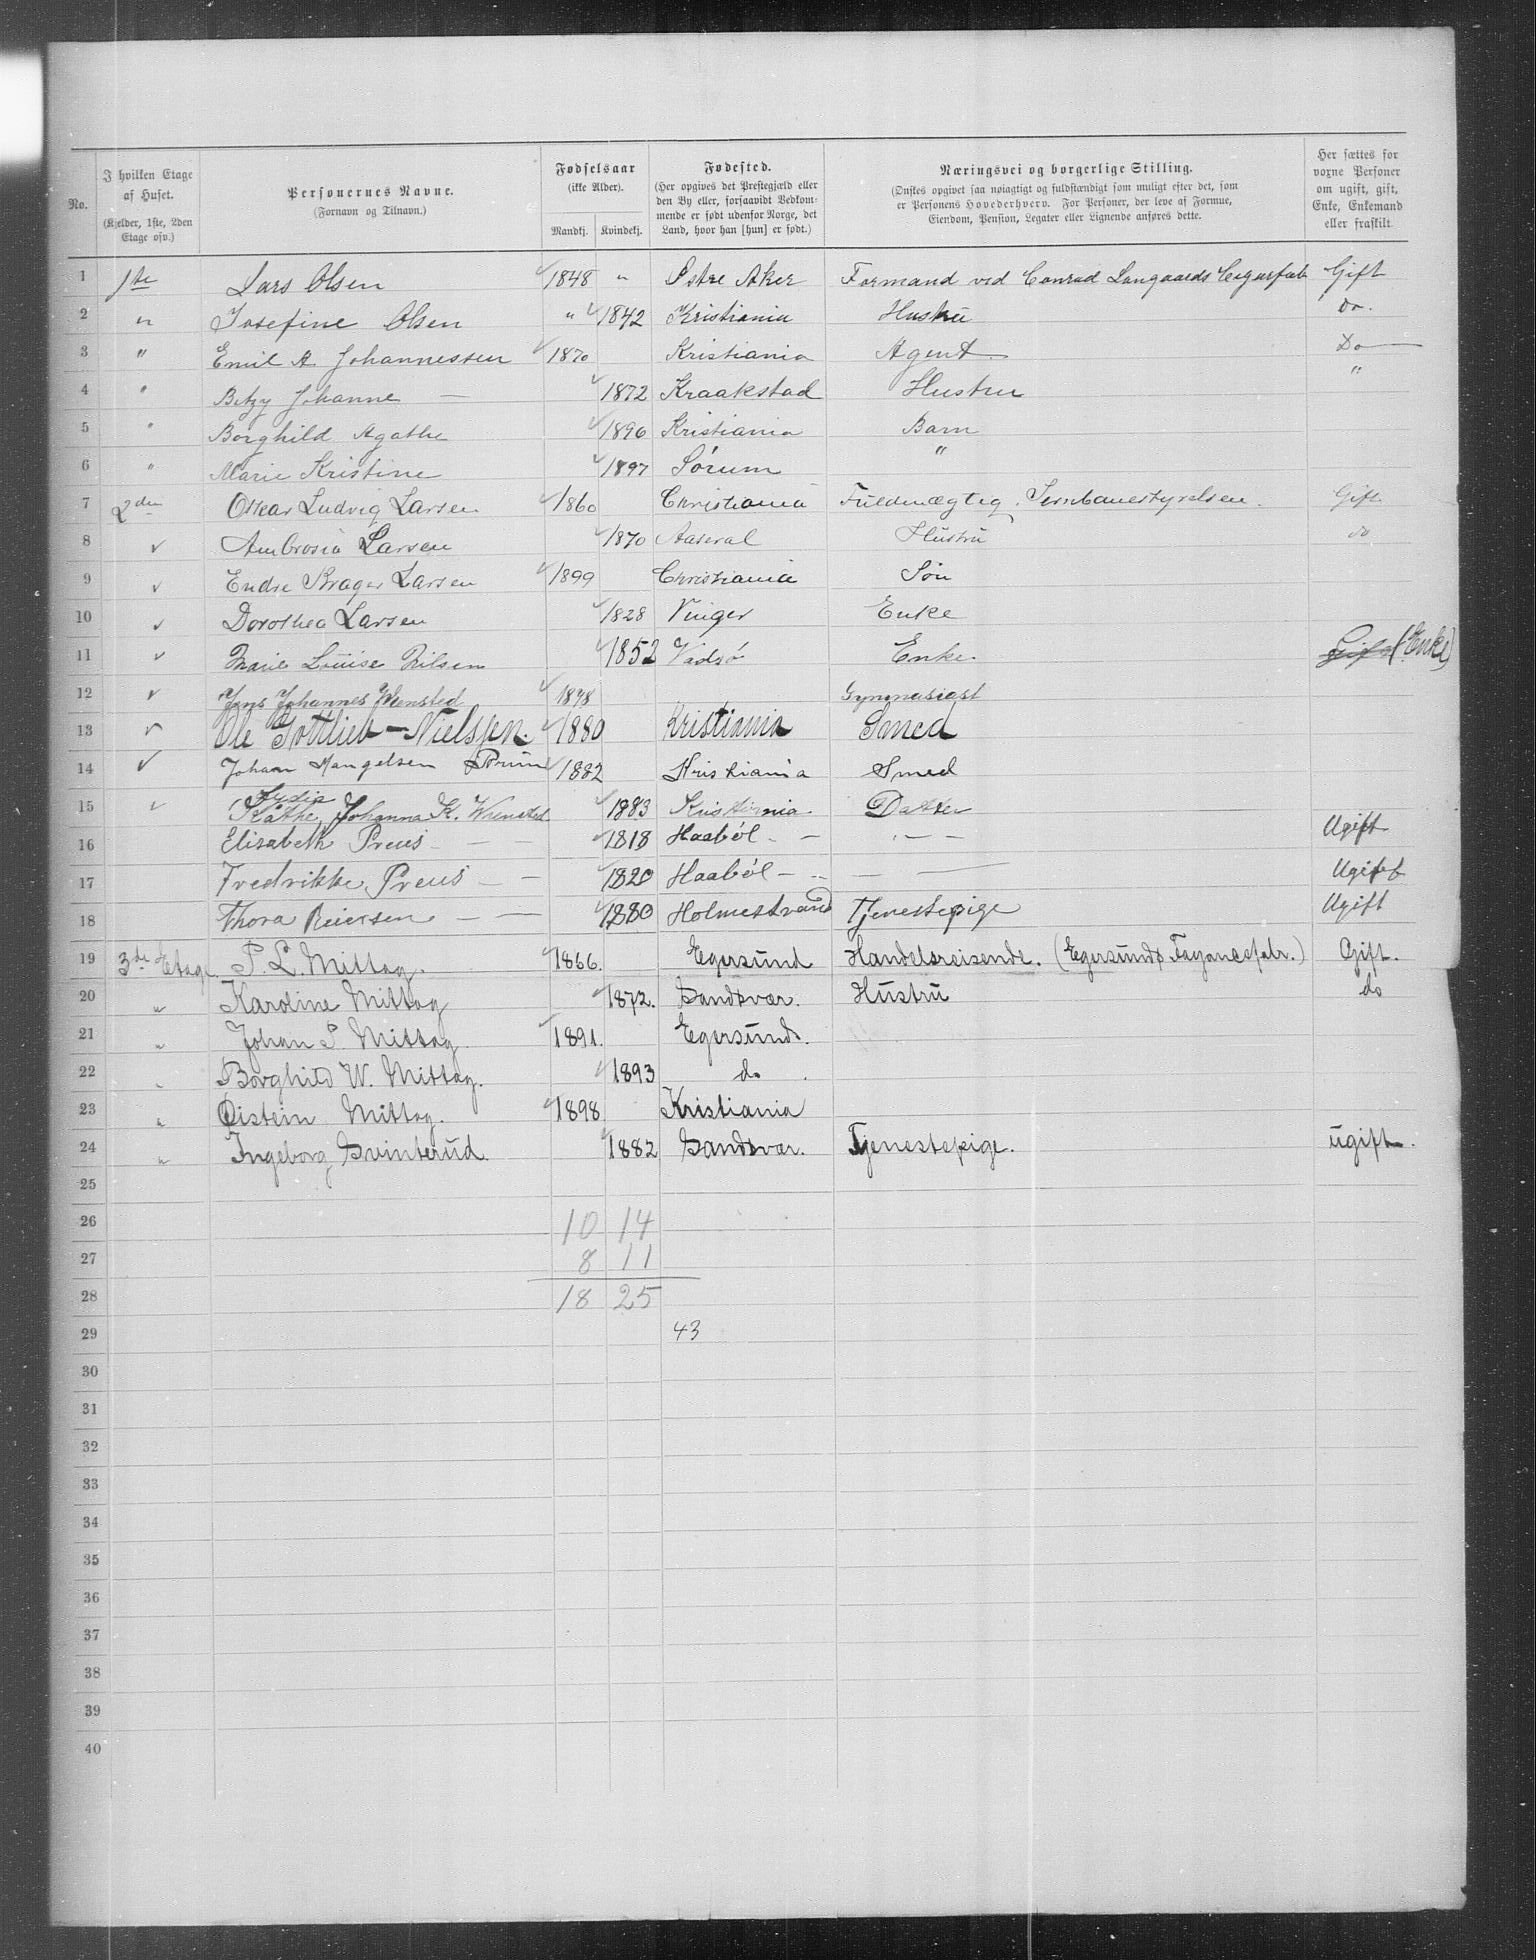 No.
I hvilken Etage af Huset.
(Kjelder, 1ste, 2den Etage osv.)
Personernes Navne.
(Fornavn og Tilnavn.)
Fødselsaar
(ikke Alder).
Mandkj. Kvindekj.
Fødested.
(Her opgives det Prestegjæld eller den By eller, forsaavidt Vedkommende er født udenfor Norge, det Land, hvor han [hun] er født.)
Næringsvei og borgerlige Stilling.
(Ønskes opgivet saa nøiagtigt og fuldstændigt som muligt efter det, som er Personens Hovederhverv. For Personer, der leve af Formue, Eiendom, Pension, Legater eller Lignende anføres dette.
Her sættes for voxne Personer om ugift, gift, Enke, Enkemand eller fraskilt.
1 1ste Lars Olsen 1848 " Østre Aker Formand ved Conrad Langaards Cigarfab Gift
2 " Josefine Olsen " 1842 Kristiania Hustru Do.
3 " Emil A Johannessen 1870 Kristiania Agent Do
4 " Betzy Johanne — 1872 Kraakstad Hustru "
5 " Borghild Agathe 1896 Kristiania Barn
6 " Marie Kristine 1897 Sörum "
7 2den Oskar Ludvig Larsen 1860 Christiania Fuldmægtig. Jernbanestyrelsen. Gift
8 Ambrosia Larsen 1870 Aaseral Hustru do
9 Endre Brager Larsen 1899 Christiania Søn
10 Dorothea Larsen 1828 Vinger Enke
11 Marie Louise Nilsen 1852 Vadsø Enke. Gift (Enke)
12 Jens Johannes Wrensted 1878 Gymnasiast
13 Ole Gottlieb — Nielssen. 1880 Kristiania Smed
14 Johan Mangelsen Bruun 1882 Kristiania Smed
15 Lydia Käthe Johanna K. Wrensted 1883 Kristiania Datter
16 Elisabeth Preus — — 1818 Haaböl — " — — Ugift
17 Fredrikke Preus — — 1820 Haaböl — " — — Ugift
18 Thora Reiersen — — 1880 Holmestrand Tjenestepige Ugift
19 3de Etage P. L. Mittag. 1866. Egersund Handelsreisende. (Egersunds Fayancefabr.) Gift.
20 " Karoline Mittag 1872. Sandsvær. Hustru do
21 " Johan P. Mittag 1891. Egersund.
22 " Borghild W. Mittag. 1893 do.
23 " Øistein Mittag. 1898 Kristiania
24 " Ingeborg Svinterud. 1882 Sandsvær. Tjenestepige. ugift.
25
26 10 14
27 8 11
28 18 25
29 43
30
31
32
33
34
35
36
37
38
39
40